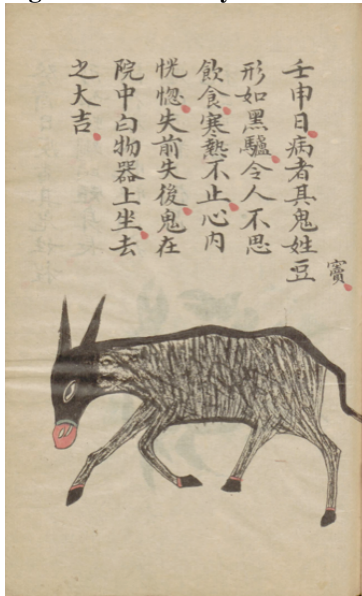 竇
壬申日病者其鬼姓豆
形如黑驢令人不思
飲食寒熱不止心内
恍惚失前失後鬼在
院中白物器上坐去
之大吉